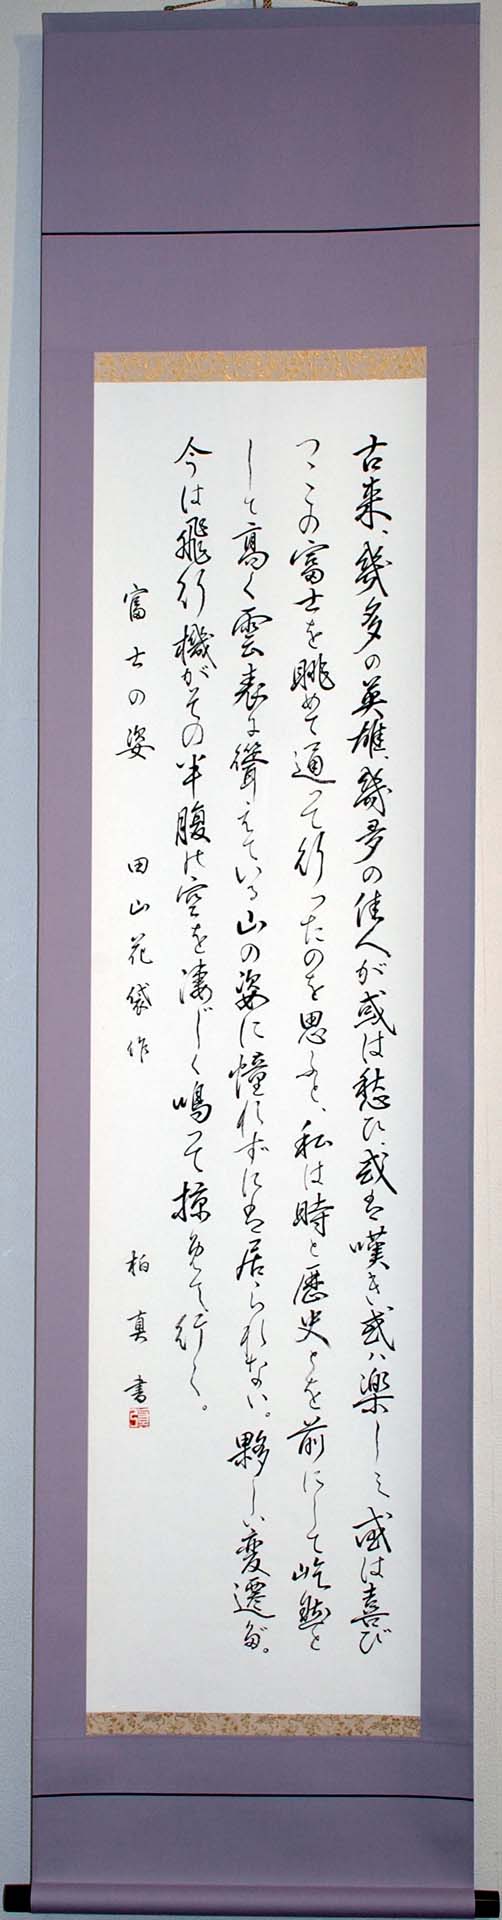 古来、幾多の英雄、幾多の佳人が或は愁ひ、或は嘆き或ハ楽しミ或は喜び
つゝこの富士を眺めて通って行ったのを思ふと、私は時と歴史とを前にして屹然と
して高く雲表に聳えている山の姿に憧れずには居られない。夥しい変遷だ。
今は飛行機がその半腹の空を凄じく鳴って掠めて行く。
富士の姿 田山花袋作 柏真書